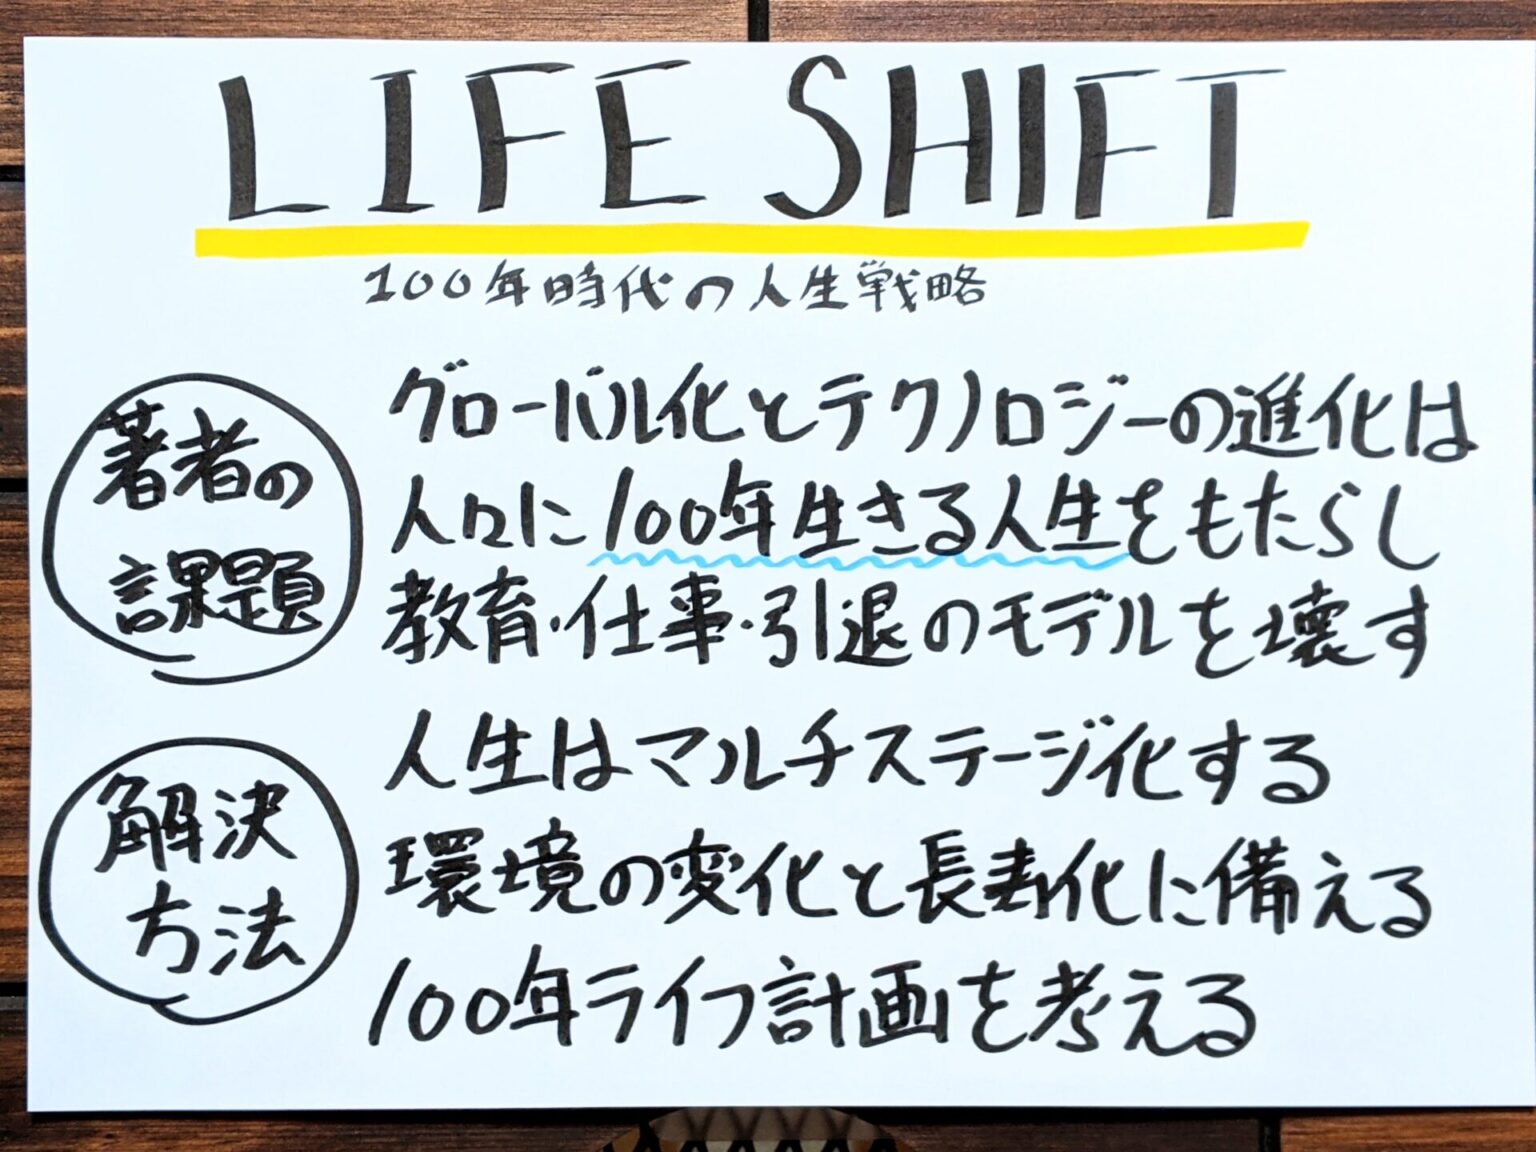 LIFE SHIFT
100年時代の人生戦略
著者の
課題
グローバル化とテクノロジーの進化は
人々に100年生きる人生をもたらし
教育・仕事・引退のモデルを壊す
解決
方法
人生はマルチステージ化する
環境の変化と長寿化に備える
100年ライフ計画を考える